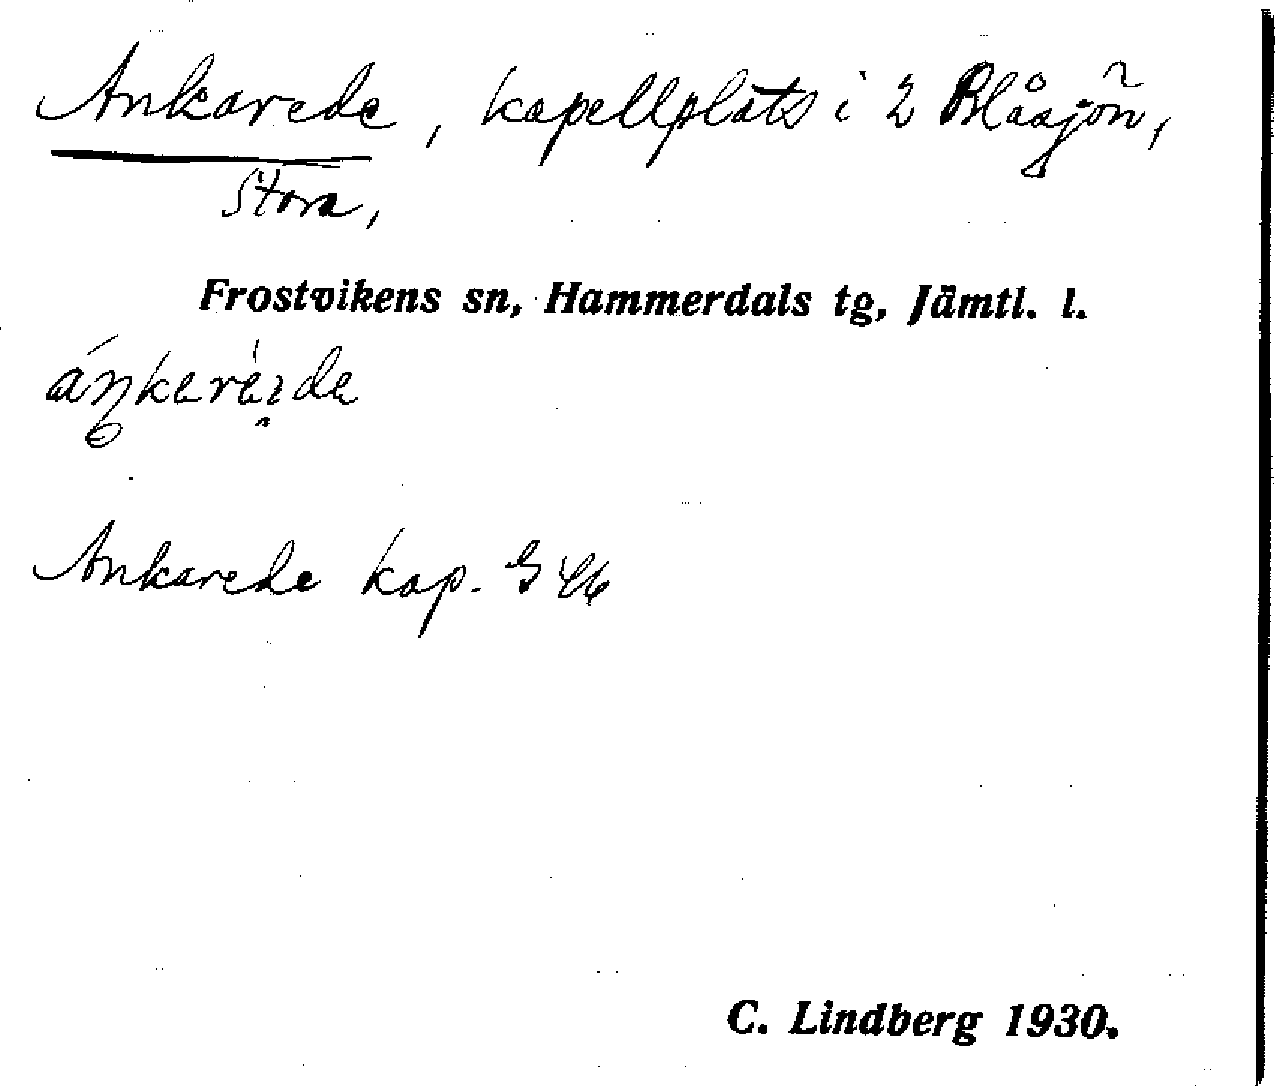 Ankarede, kapellplats i 2 Blåsjön,
Stora,
Frostvikens sn, Hammerdals tg, Jämtl. l.
áŋkerèıde
Ankarede kap. G 46
C. Lindberg 1930.